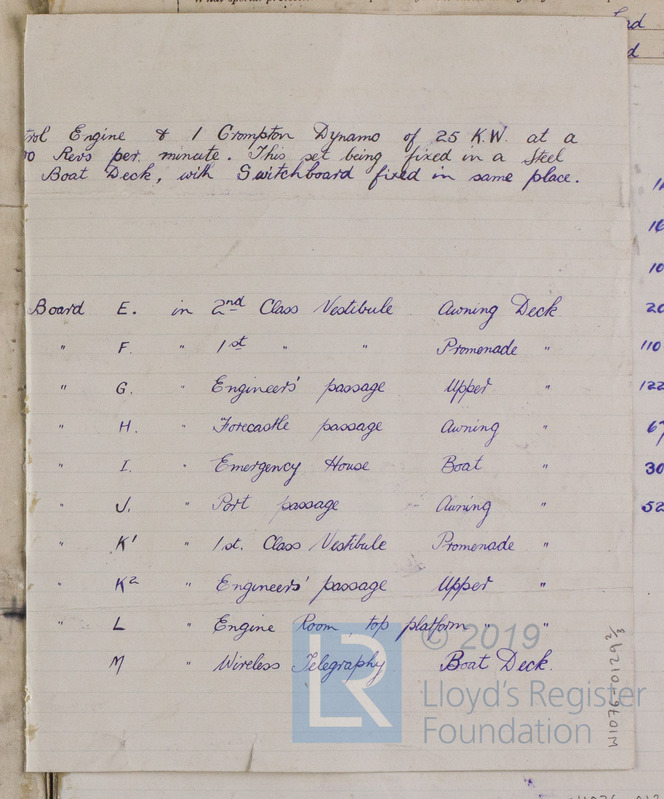 Engine & 1 Crompton Dynamo of 25 K.W. at a
Revs per. minute. This set being fixed in a Steel
Boat Deck, with Switchboard fixed in same place.
Board E. in 2nd Class Vestibule Awning Deck
" F. " 1st " " Promenade "
" G. " Engineers' passage Upper "
" H. " Forecastle passage Awning "
" I. " Emergency House Boat "
" J. " Port passage Awning "
" K' " 1st. Class Vestibule Promenade "
" K2 " Engineers' passage Upper "
" L " Engine Room top platform " "
M " Wireless Telegraphy Boat Deck.
LR © 2019
Lloyd's Register
Foundation
110
122
30
52